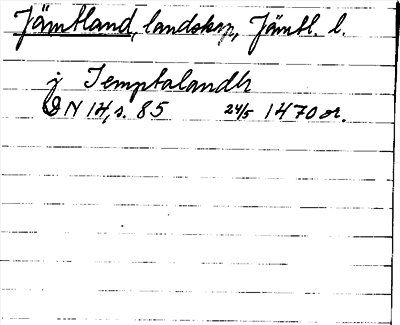 Jämtland, landskap, Jämtl. l.
j Temptalandh
DN 14, s. 85 24/5 1470 or.